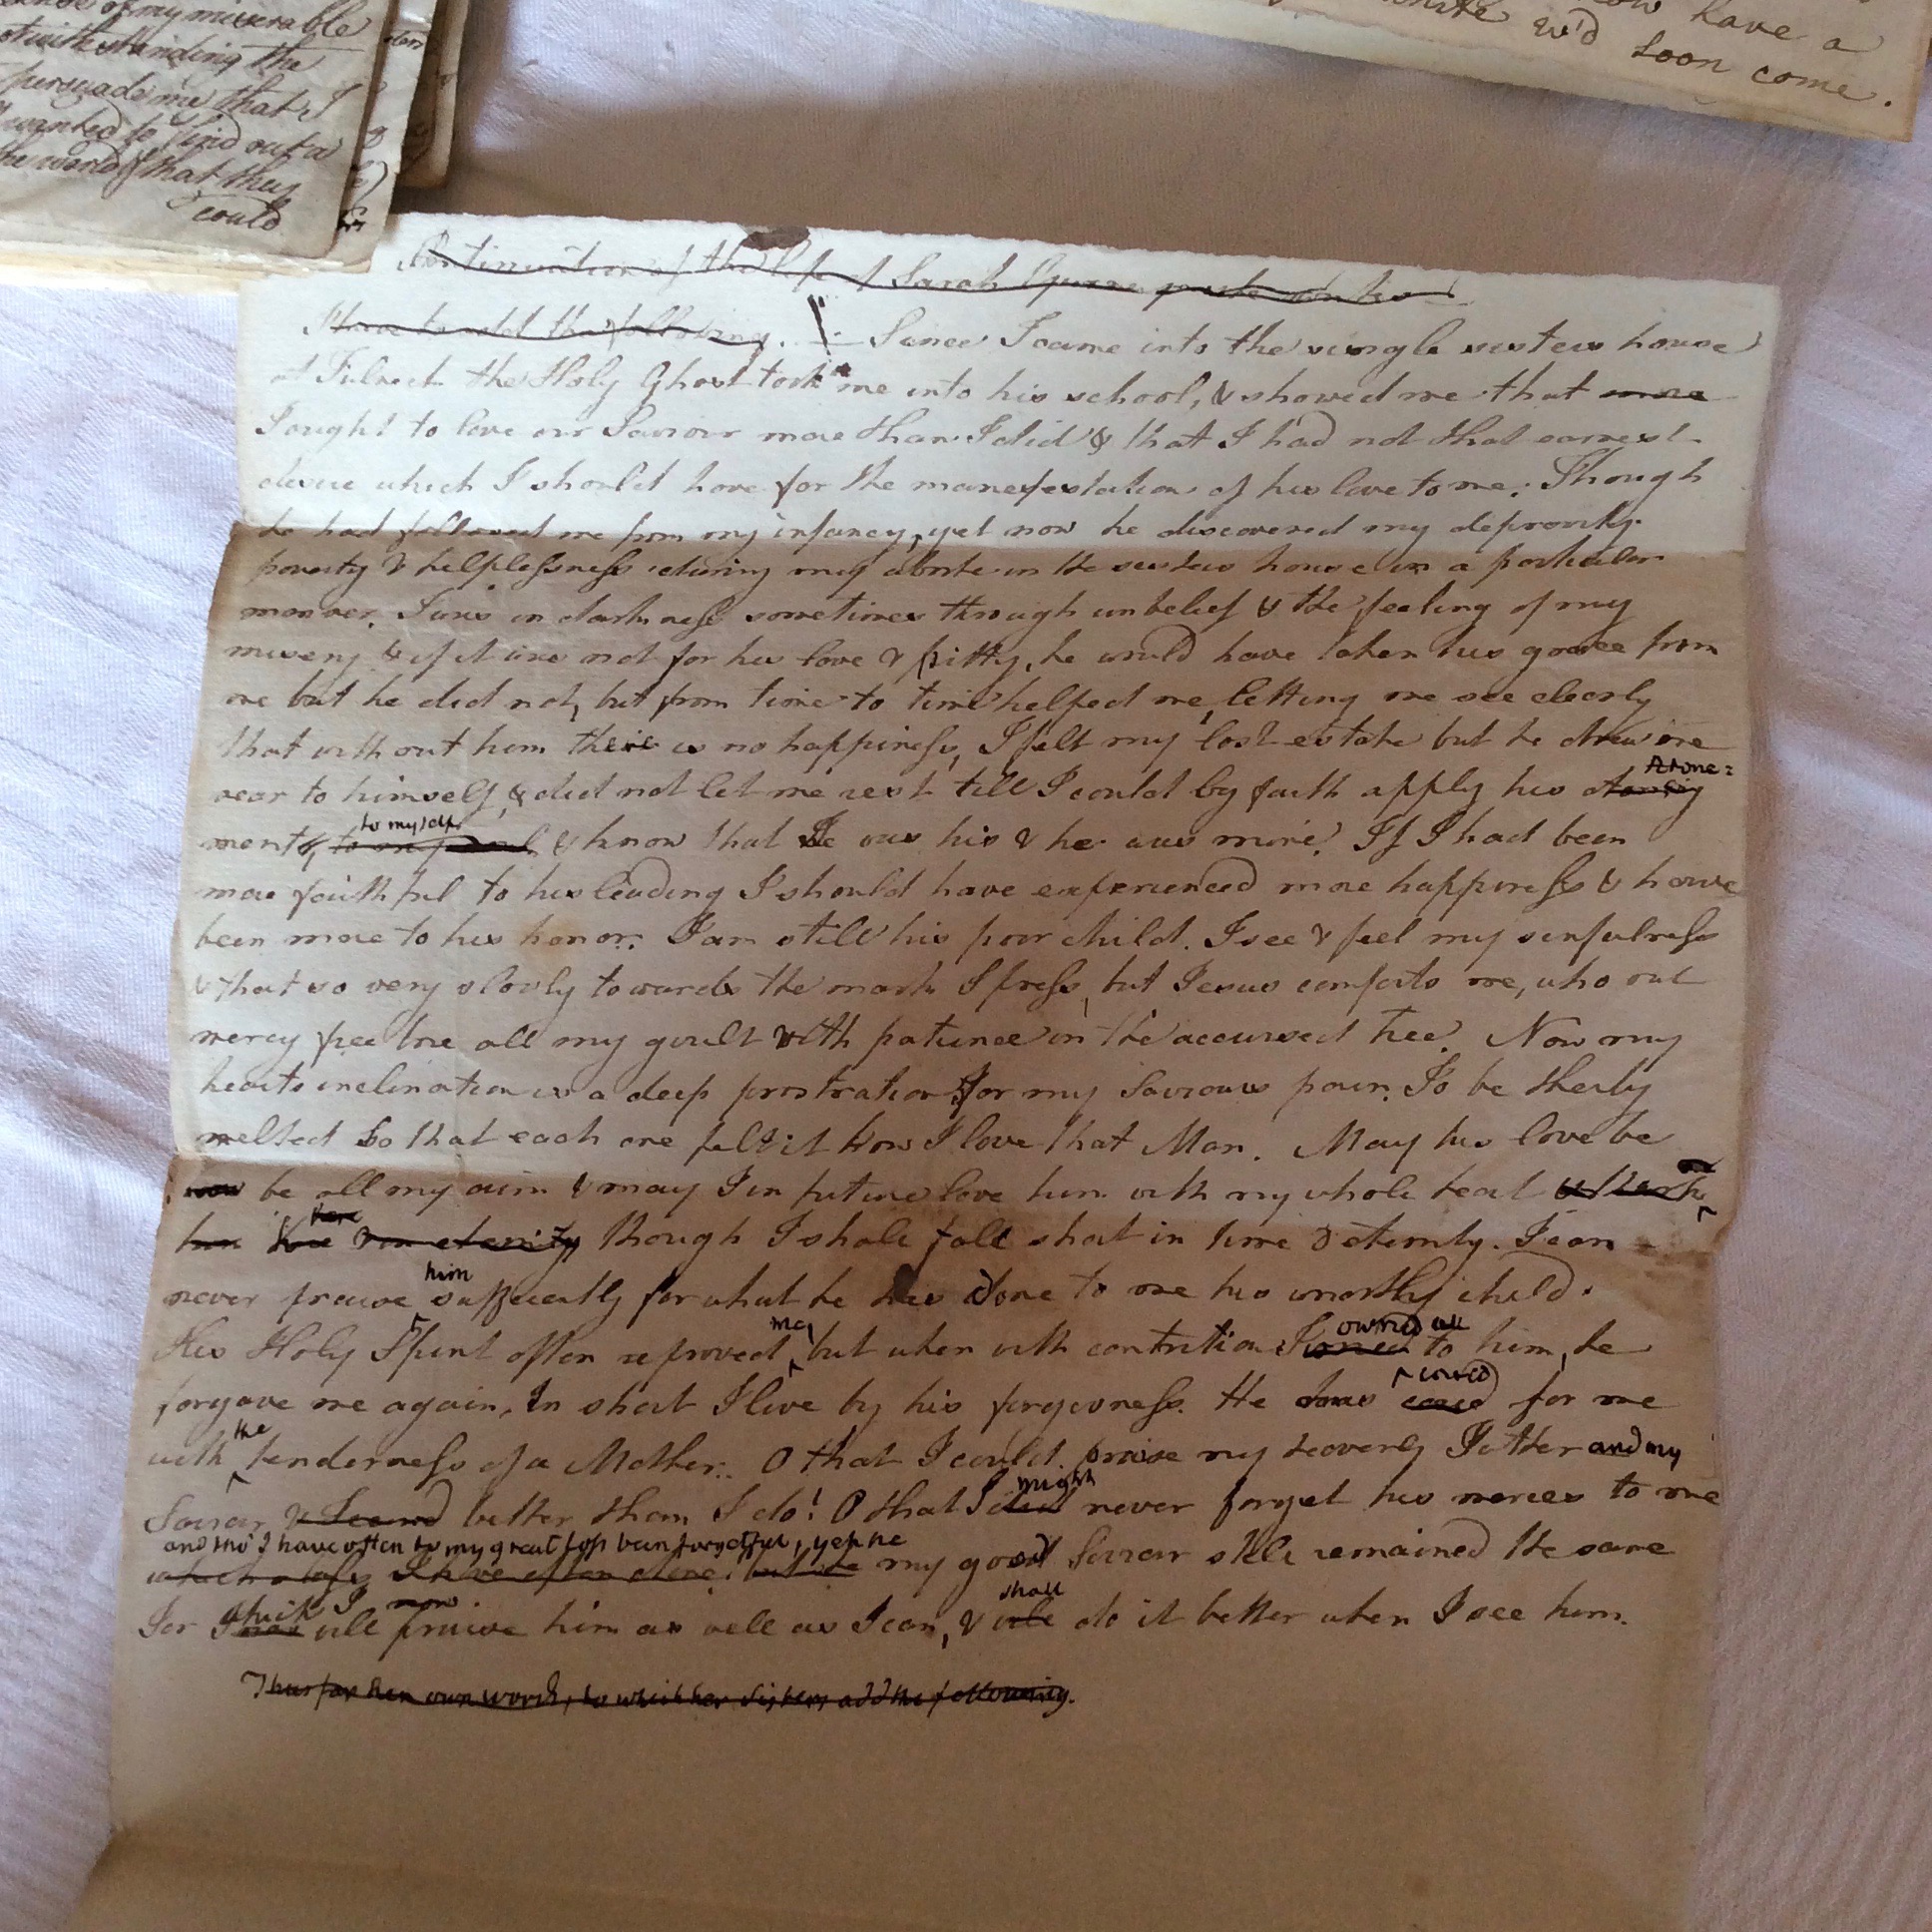 of my miserable
notwithstanding the
persuade me that I
wanted to find out a
the world & that they
could
have a
w'd soon come.
Continuation of the life of Sarah
I have to add the following. Since I came into the single sisters house
at Fulneck the Holy Ghost took me into his school, & showed me that more
I ought to love our Saviour more than I did & that I had not that earnest
desire which I should have for the manefestation of his love to me. Though
he had followed me from my infancy, yet now he discovered my depravity.
poverty & helplessness during my abode in the sisters house in a particular
manner. I was in darkness sometimes through unbelief & the feeling of my
misery & if it was not for his love & pitty, he would have taken his grace from
me but he did not, but from time to time helped me, letting me see clearly
that without him there is no happiness, I felt my lost estate but he drew me
near to himself, & did not let me rest till I could by faith apply his Atone=
ment, to my soul to myself & know that I was his & he was mine. If I had been
more faithful to his leading I should have experienced more happiness & have
been more to his honor. I am still his poor child. I see & feel my sinfulness
& that so very slowly towards the mark I press, but Jesus comforts me, who out
mercy free bore all my guilt with patience on the accursed tree. Now my
hearts inclination is a deep prostration for my Saviours pain. To be therby
melted so that each one felt it how I love that Man. May his love be
now be all my aim & may I in future love him with my whole heart
him here here & in eternity though I shall fall short in time & eternity. I can
never praise him sufficiently for what he has done to me his unworthy child.
His Holy Spirit often reproved me, but when with contrition I owned all to him, he
forgave me again, In short I live by his forgiveness. He cared for me
with the tenderness of a Mother. O that I could praise my heavenly Father and my
Saviour better than I do! O that I might never forget his mercies to me
and tho' I have often to my great loss been forgetful, yet he
I have often done. but he my good Saviour still remained the same
For I will now praise him as well as I can, & will shall do it better when I see him.
Thus far her own words, to which her sisters add the following.